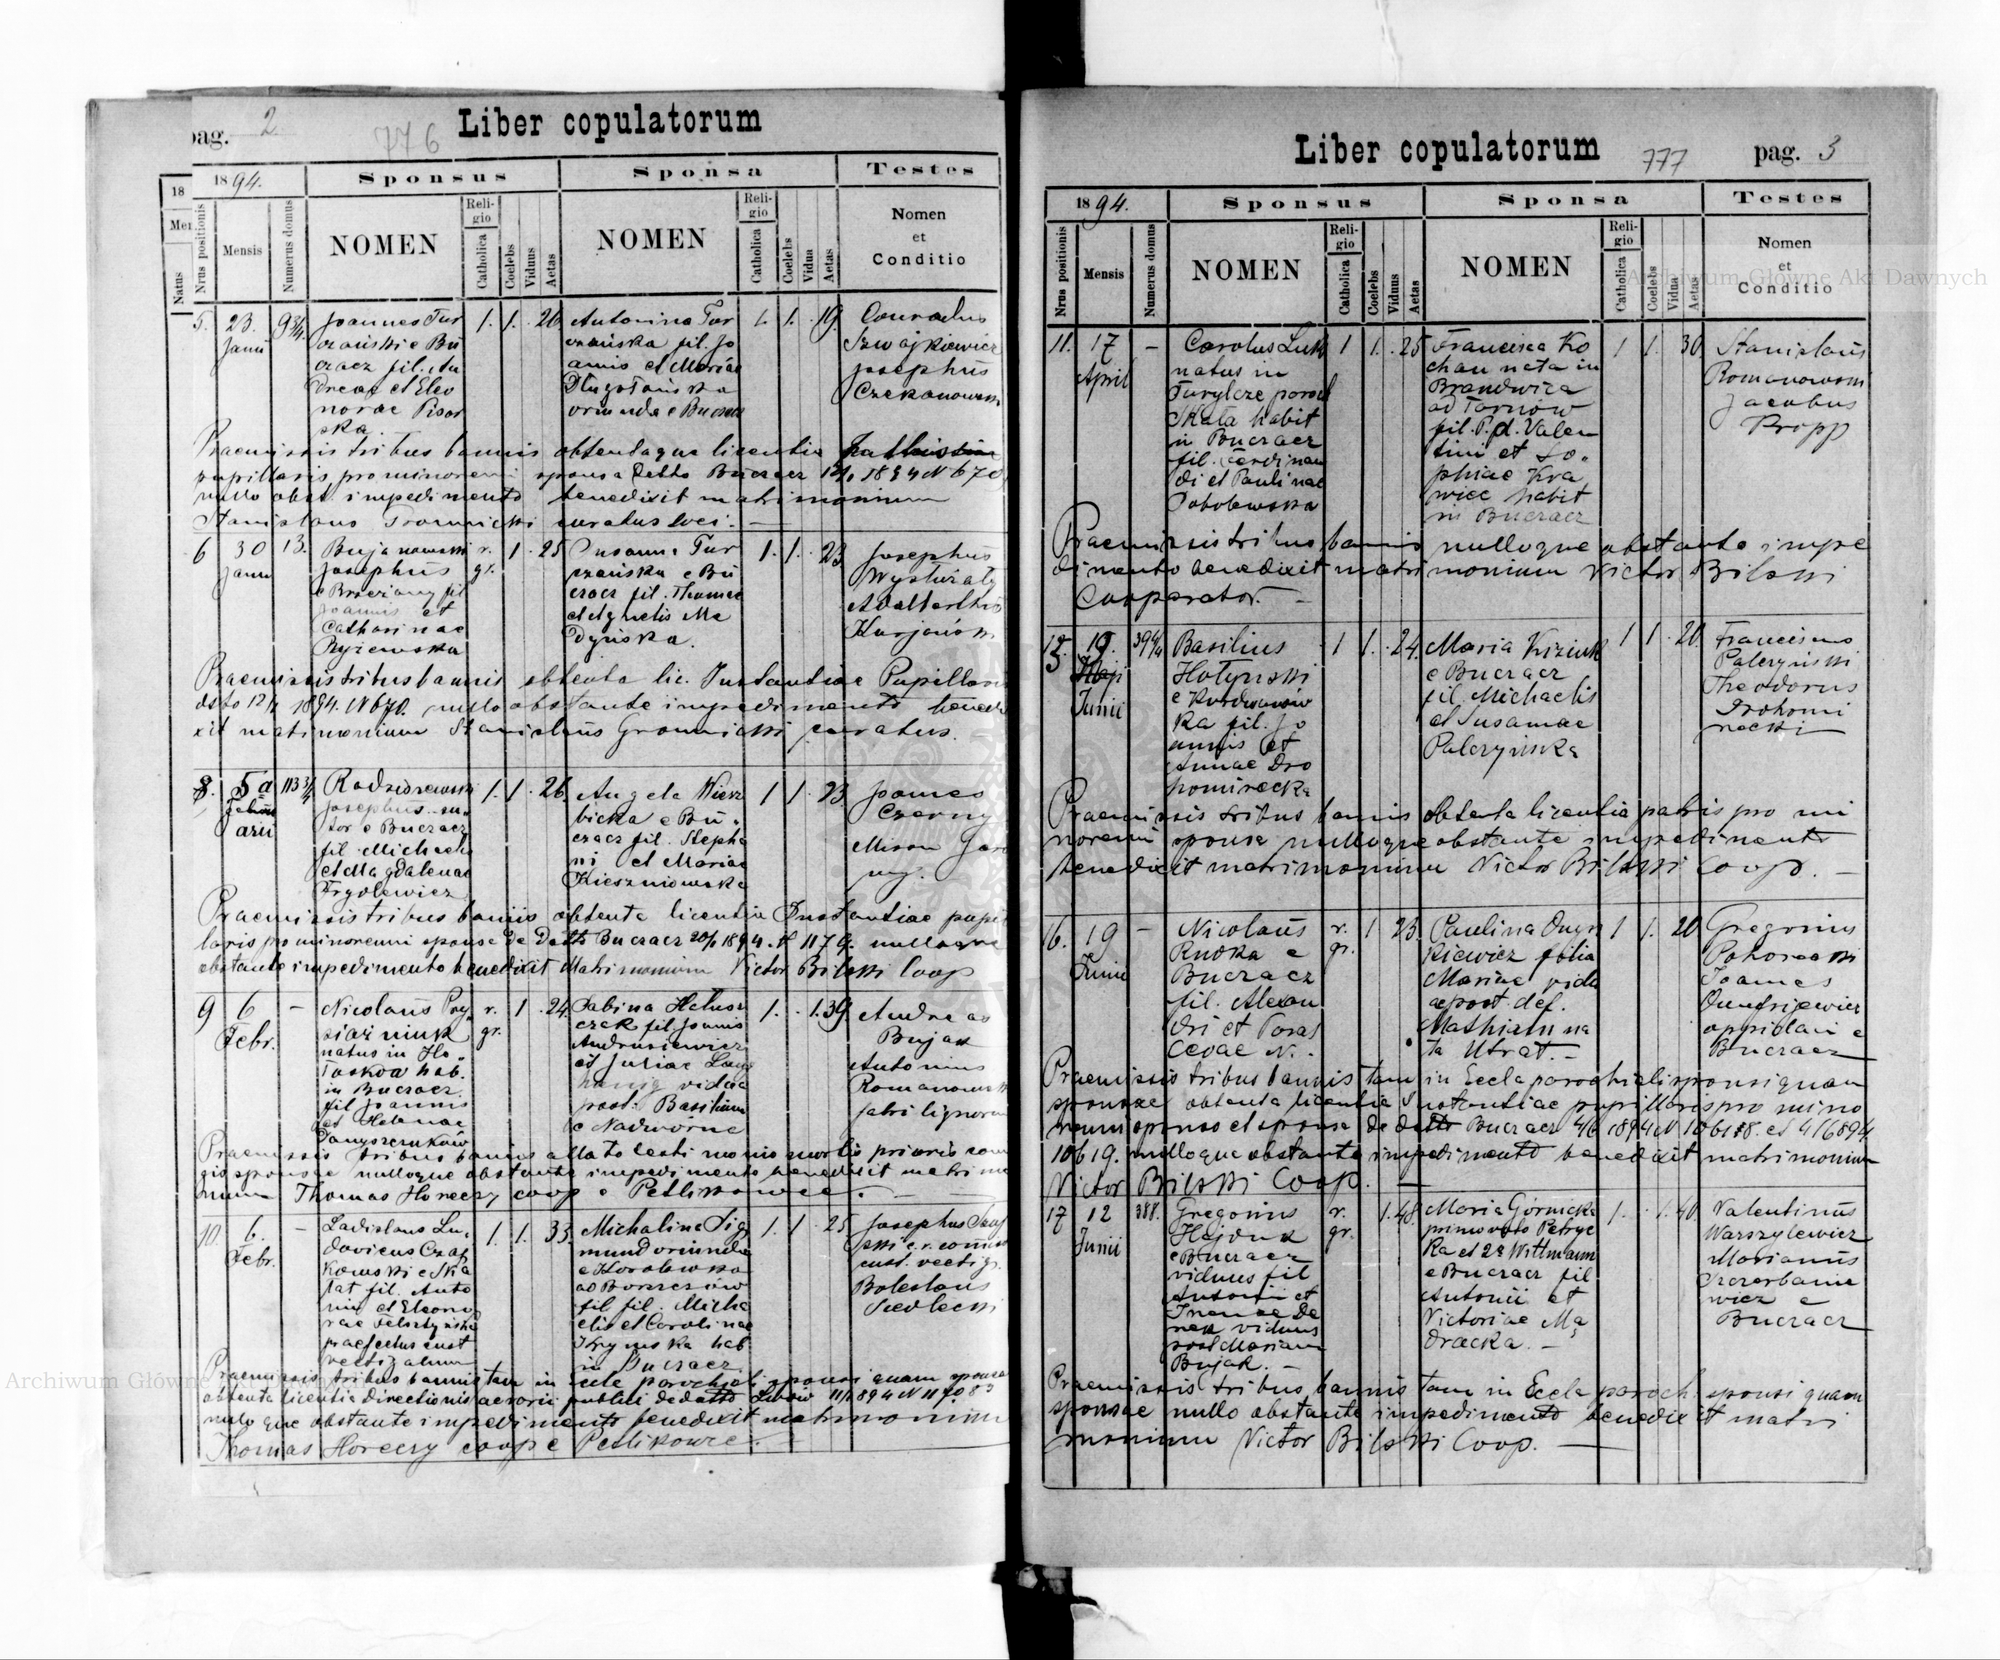 pag. 2
776
Liber copulatorum
1894.
Sponsus
Sponsa
Testes
18
Nrus positionis
Mensis
Numerus domus
NOMEN
Reli-
gio
Catholica
Coelebs
Viduus
Aetas
NOMEN
Reli-
gio
Catholica
Coelebs
Vidua
Aetas
Nomen
et
Conditio
Natus
5. 23. Janu 93/4
Joannes Tur
czański e Bu
czacz fil. An
dreae et Eleo
norae Pisar
ska.
1. 1. 26
Antonina Tur
czańska fil. Jo
annis et Mariae
Długołańska
oriunda e Buczacz
1. 1. 19
Conradus
Szwajkiewicz
Josephus
Czekanowski
Praemissis tribus bannis obtentaque licentia
pupillaris pro minorenni sponsa Detto Buczacz 1894 N 670
nullo obst. impedimento benedixit matrimonium
Stanislaus Gromnicki curatus loci. —
6 30 Janu 13.
Bujanowski
Josephus
e Brzeżany fil
Joannis et
Catharinae
Ryżewska
r. gr. 1 25
Susanna Tur
czańska e Bu
czacz fil. Thomae
et Agnetis Ma
dyńska.
1. 1. 23
Josephus
Adalbertus
Praemissis tribus bannis obtenta lic. Instantiae Pupillaris
dsto 12/1 1894. N 670. nullo obstante impedimento bened
ixit matrimonium Stanislaus Gromnicki curatus. —
8. 5a Febru arii 1133/4
Radziszewski
Josephus su
tor e Buczacz
fil. Michaelis
et Magdalenae
Frydlewicz
1. 1. 26.
Angela Wierz
bicka e Bu
czacz fil. Stepha
ni et Mariae
Kieszniowska
1 1. 23
Joannes
Czerny
Miron
Praemissis tribus bannis obtenta licentia Instantiae pupil
laris pro minorenni sponse de Dato Buczacz 20/1 1894. N 1179. nulloque
obstante impedimento benedixit Matrimonium Victor Bilski Coop
9 6 Febr. —
Nicolaus Pry
siażniuk
natus in Ho
łoskow hab.
in Buczacz.
fil Joannis
et Helenae
Danyszczuków
r. gr. 1 24
Sabina Helusz
czak fil Joannis
Andrusiewicz
et Juliae
vidua
post. Basilium
e Nadworne
1. 1. 39.
Andreas
Bujak
Antonius
Romanowski
fabri lignorum
Praemissis tribus bannis allato testimonio mortis prioris con
gis sponsae nulloque obstante impedimento benedixit matrimo
nium Thomas Horeczy coop e Petlikowce. —
10. 6. Febr. —
Ladislaus Lu
dovicus Czaj
kowski e Ska
łat fil. Anto
nii et Eleono
rae Felsztyńska
praefectus cust
vectigalium
1. 1. 33
Michalina Sig
mund oriunda
e Korolowka
ad Borszczów
fil fil. Micha
elis et Carolinae
Krymska hab.
in Buczacz.
1. 1. 25
Josephus
cust. vectig.
Boleslaus
Siedlecki
Praemissis tribus bannis tam in Eccle parochiali sponsi quam sponsae
obtenta licentia directionis aerarii publici de datto Lwów 11/1 894 N 117083
nulloque obstante impedimento benedixit matrimonium
Thomas Horeczy coop e Petlikowce. —
Liber copulatorum
777
pag. 3
1894.
Sponsus
Sponsa
Testes
Nrus positionis
Mensis
Numerus domus
NOMEN
Reli-
gio
Catholica
Coelebs
Viduus
Aetas
NOMEN
Reli-
gio
Catholica
Coelebs
Vidua
Aetas
Nomen
et
Conditio
11. 17 April —
Carolus Luk
natus in
Turylcze paroch
Skała habit
in Buczacz
fil. Ferdinan
di et Paulinae
Sobolewska
1 1. 25
Francisca Ko
chan nata in
Brandwica
ad Tarnów
fil. P. d. Valen
tini et So
phiae Kra
wiec habit
in Buczacz
1 1. 30
Stanislaus
Romanowski
Jacobus
Kropp
Praemissis tribus bannis nulloque obstante impe
dimento benedixit matrimonium Victor Bilski
Cooperator. —
15. 19. Junii 394/4
Basilius
Hołyński
e Kurdwanów
ka fil. Jo
annis et
Annae Dro
homirecka
1 1. 24.
Maria Kiziuk
e Buczacz
fil Michaelis
et Susannae
Palczyńska
1 1. 20
Franciscus
Palczyński
Theodorus
Drohomi
recki
Praemissis tribus bannis obtenta licentia patris pro mi
norenni sponsa nulloque obstante impedimento
benedixit matrimonium Victor Bilski Coop. —
16. 19 Junii —
Nicolaus
Rudka e
Buczacz
fil. Alexan
dri et Paras
cevae N. —
r. gr. 1 23.
Paulina Onys
kiewicz filia
Mariae vidu
ae post. def.
Mathiam na
ta Utrat. —
1 1. 20
Gregorius
Pohorecki
Joannes
Onufrijewicz
oppidani e
Buczacz
Praemissis tribus bannis tam in Eccla parochiali sponsi quam
sponsae obtenta licentia Instantiae pupillaris pro mino
renni sponso et sponsa de datto Buczacz 4/6 1894 N 10618. et 4/6 894
10619. nulloque obstante impedimento benedixit matrimonium
Victor Bilski Coop. —
17 12 Junii 388.
Gregorius
Hajduk
e Buczacz
viduus fil
Antonii et
Irenae De
nek viduus
post Mariam
Bujak. —
r. gr. 1. 48.
Maria Górnicka
primo voto Petryc
ka et 2o Wittmann
e Buczacz fil
Antonii et
Victoriae Mą
dracka. —
1. 1. 40.
Valentinus
Warszylewicz
Marianus
Szczerbanie
wicz e
Buczacz
Praemissis tribus bannis tam in Eccla paroch. sponsi quam
sponsae nullo obstante impedimento benedixit matri
monium Victor Bilski Coop. —
Archiwum Główne Akt Dawnych
Archiwum Główne